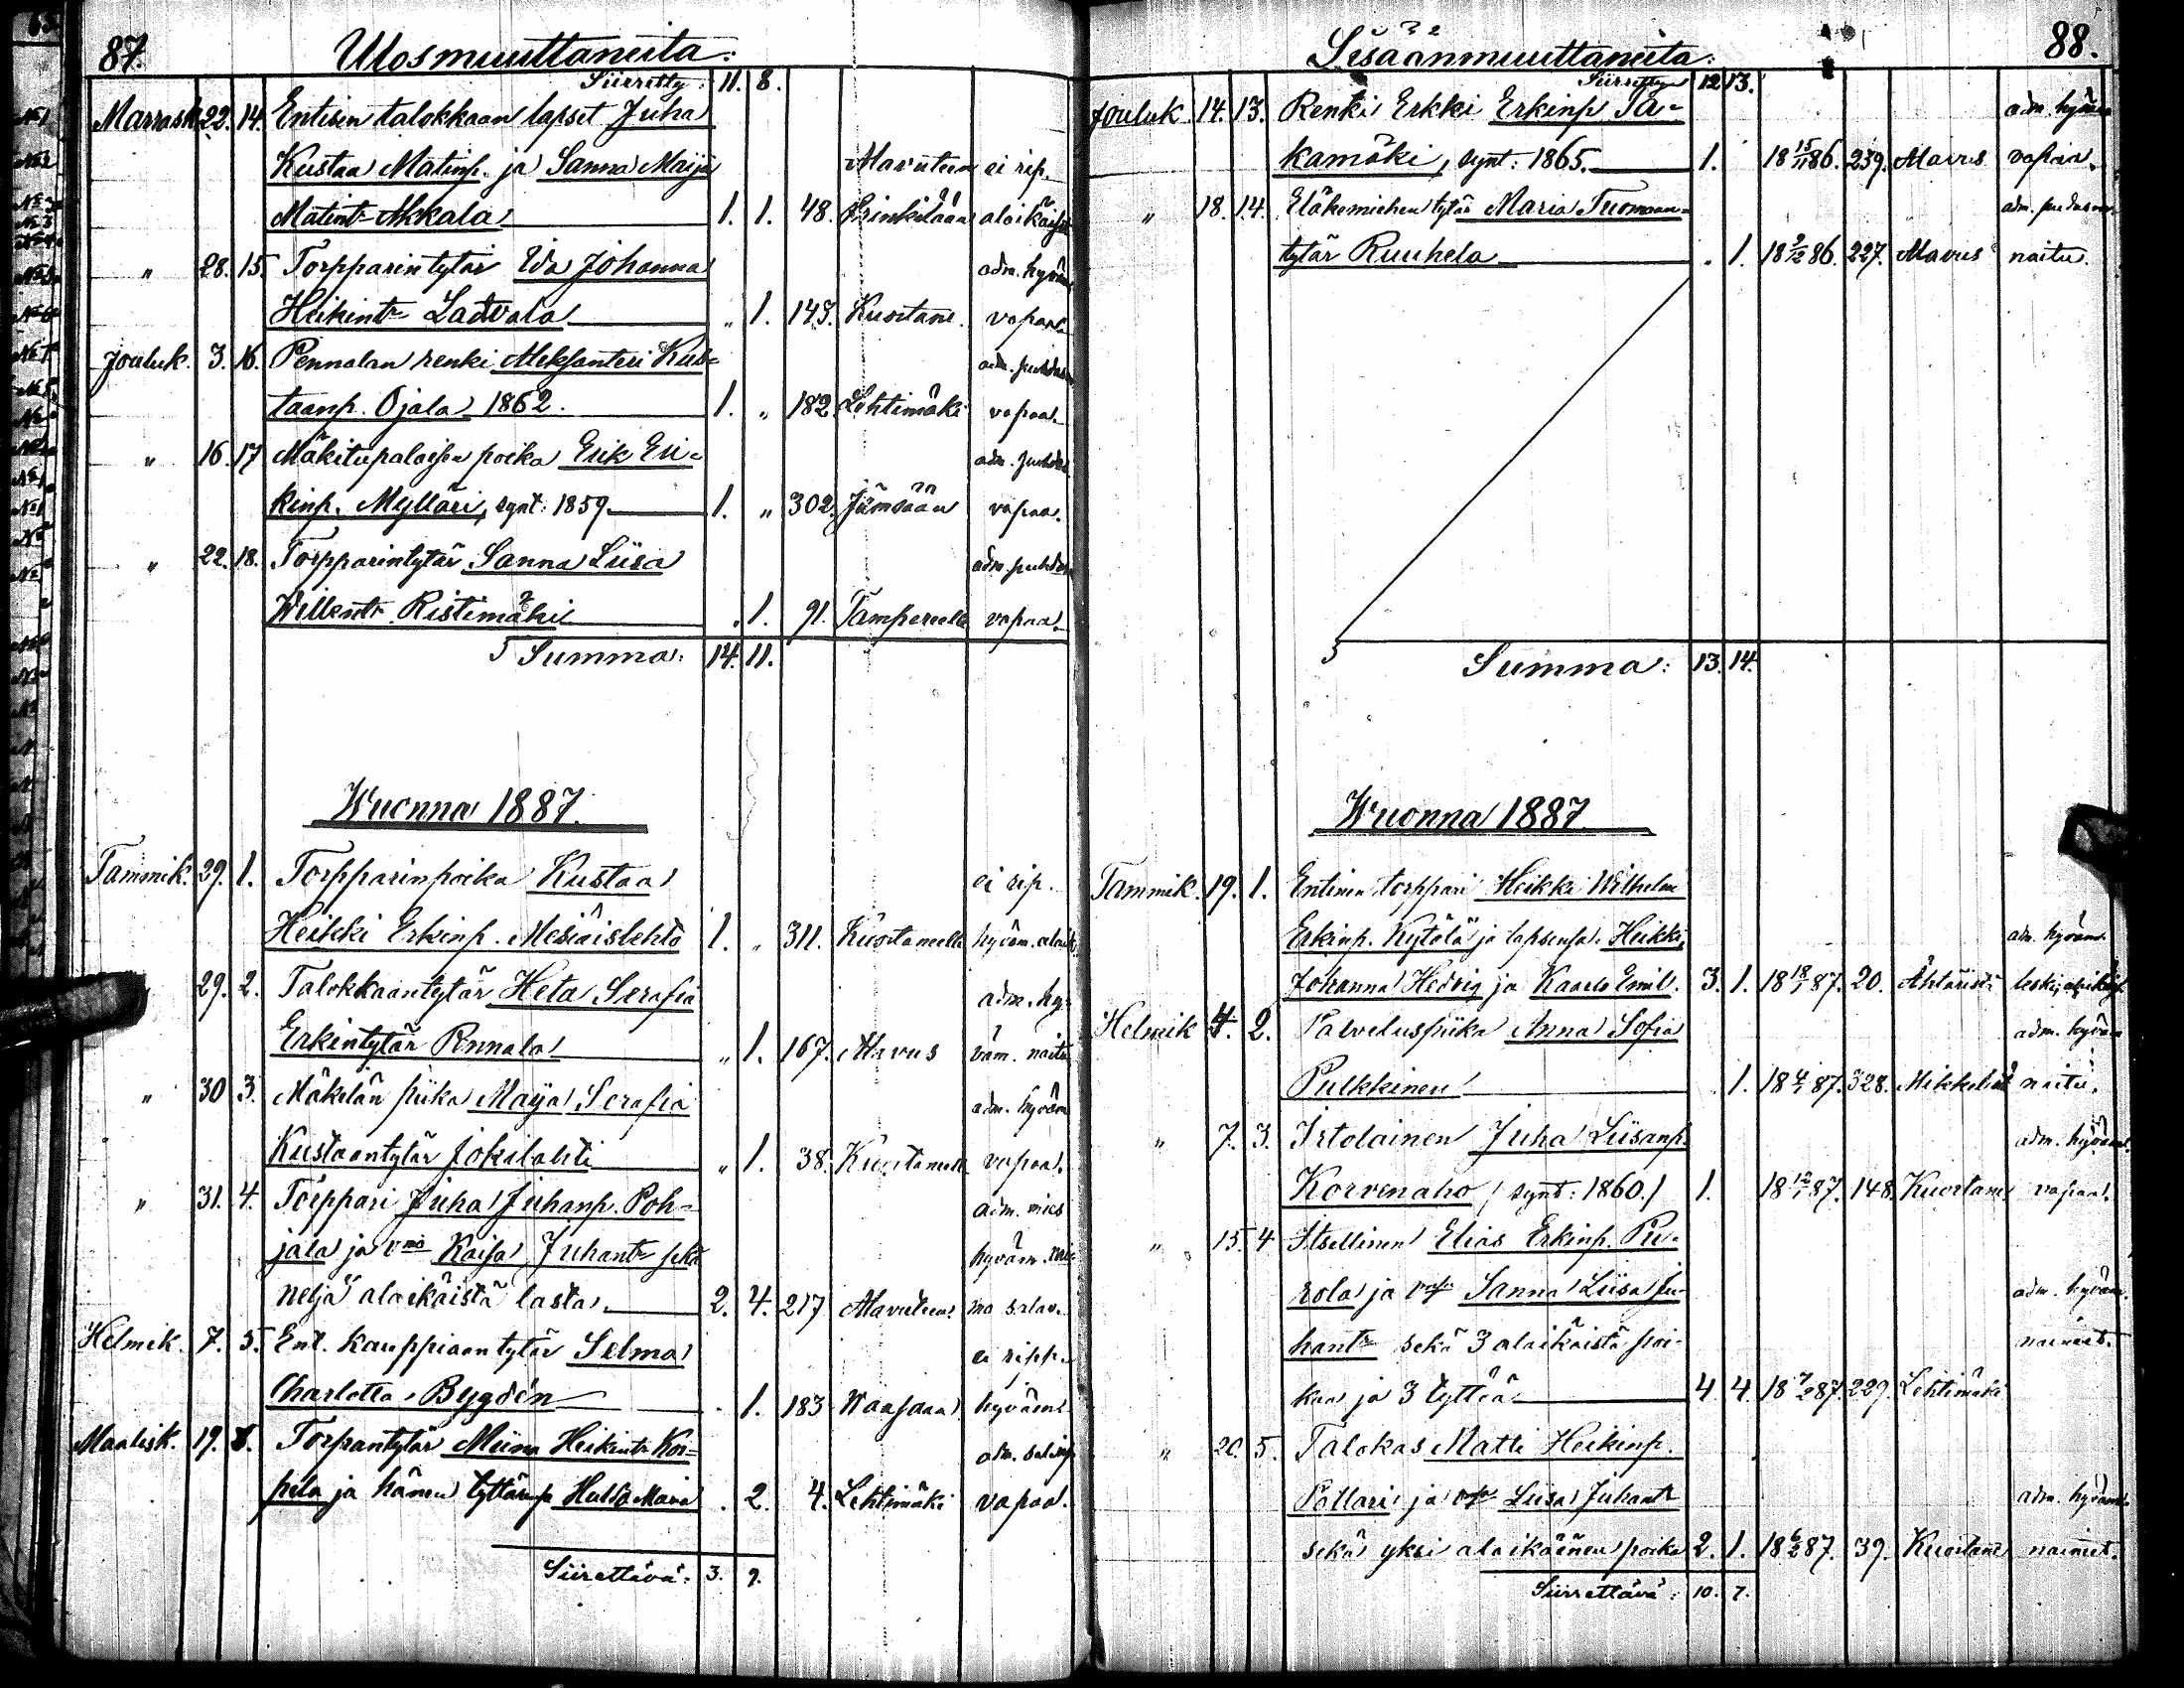 87. Ulosmuuttaneita:
Siirretty: 11. 8.
Marrask. 22. 14. Entisen talokkaan lapset Juha
Kustaa Matinp. ja Sanna Maija Alavuteen ei rip.
Matintr Akkala 1. 1. 48. alaikäiset
" 28. 15. Torpparintytär Ida Johanna adm. hyväm.
Heikintr Ladvala " 1. 143. Kuortane. vapaa.
Jouluk. 3. 16. Pennalan renki Aleksanteri Kus-
taanp. Ojala 1862. 1. " 182 Lehtimäki vapaa.
" 16. 17 Mäkitupalaisen poika Erik Eri-
kinp. Mylläri, synt: 1859. 1. " 302. Jämsään vapaa.
" 22. 18. Torpparintytär Sanna Liisa
Willentr Ristimäki " 1. 91. Tampereelle vapaa.
Summa: 14. 11.
Wuonna 1887.
Tammik. 29. 1. Torpparinpoika Kustaa ei rip.
Heikki Erkinp. Mesiäislehto 1. " 311. Kuortaneelle hyväm. alaik.
29. 2. Talokkaantytär Heta Serafia adm. hy-
Erkintytär Pennala " 1. 167. Alavus väm. naitu
" 30 3. Mäkelän piika Maija Serafia adm. hyväm
Kustaantytär Jokilahti " 1. 38. Kuortaneelle vapaa.
" 31. 4. Torppari Juha Juhanp. Poh- adm. mies
jala ja vmo Kaisa Juhantr sekä hyväm. vai-
neljä alaikäistä lasta. 2. 4. 217 Alavuteen. mo
Helmik. 7. 5. Ent. kauppiaan tytär Selma ei ripp.
Charlotta Bygdén . 1. 183 Waasaan hyväm.
Maalisk. 19. 6. Torpantytär Miina Heikintr Kor-
pela ja hänen tyttärensä Hulda Maria . 2. 4. Lehtimäki vapaa.
Siirettävä: 3. 9.
Sisäänmuuttaneita. 88.
Siirretty 12 13.
Jouluk. 14. 13. Renki Erkki Erkinp Ta- adm. hyväm
kamäki, synt: 1865. 1. 18 15/11 86. 239. Alavus vapaa.
" 18. 14. Eläkemiehen tytär Maria Tuomaan-
tytär Ruuhela . 1. 18 2/12 86. 227. Alavus naitu.
Summa: 13. 14.
Wuonna 1887.
Tammik. 19. 1. Entinen torppari Heikki Wilhelm
Erkinp. Kytölä ja lapsensa: Heikki, adm. hyväm.
Johanna Hedvig ja Kaarlo Emil. 3. 1. 18 18/1 87. 20. Ähtäristä leski, alaikäis.
Helmik 4. 2. Palveluspiika Anna Sofia adm. hyväm
Pulkkinen . 1. 18 4/1 87. 328. Mikkelist naitu.
" 7. 3. Irtolainen Juha Liisanp. adm. hyväm.
Korvenaho / synt: 1860. / 1. 18 12/1 87. 148. Kuortane vapaa.
" 15. 4 Itsellinen Elias Erkinp. Pu-
rola ja vmsa Sanna Liisa Ju- adm. hyväm.
hantr sekä 3 alaikäistä poi- naineet.
kaa ja 3 tyttöä 4. 4. 18 7/2 87. 229. Lehtimäki
" 20. 5. Talokas Matti Heikinp.
Pollari ja vmsa Liisa Juhantr adm. hyväm.
sekä yksi alaikäinen poika 2. 1. 18 6/2 87. 39. Kuortane naineet.
Siirrettävä: 10. 7.